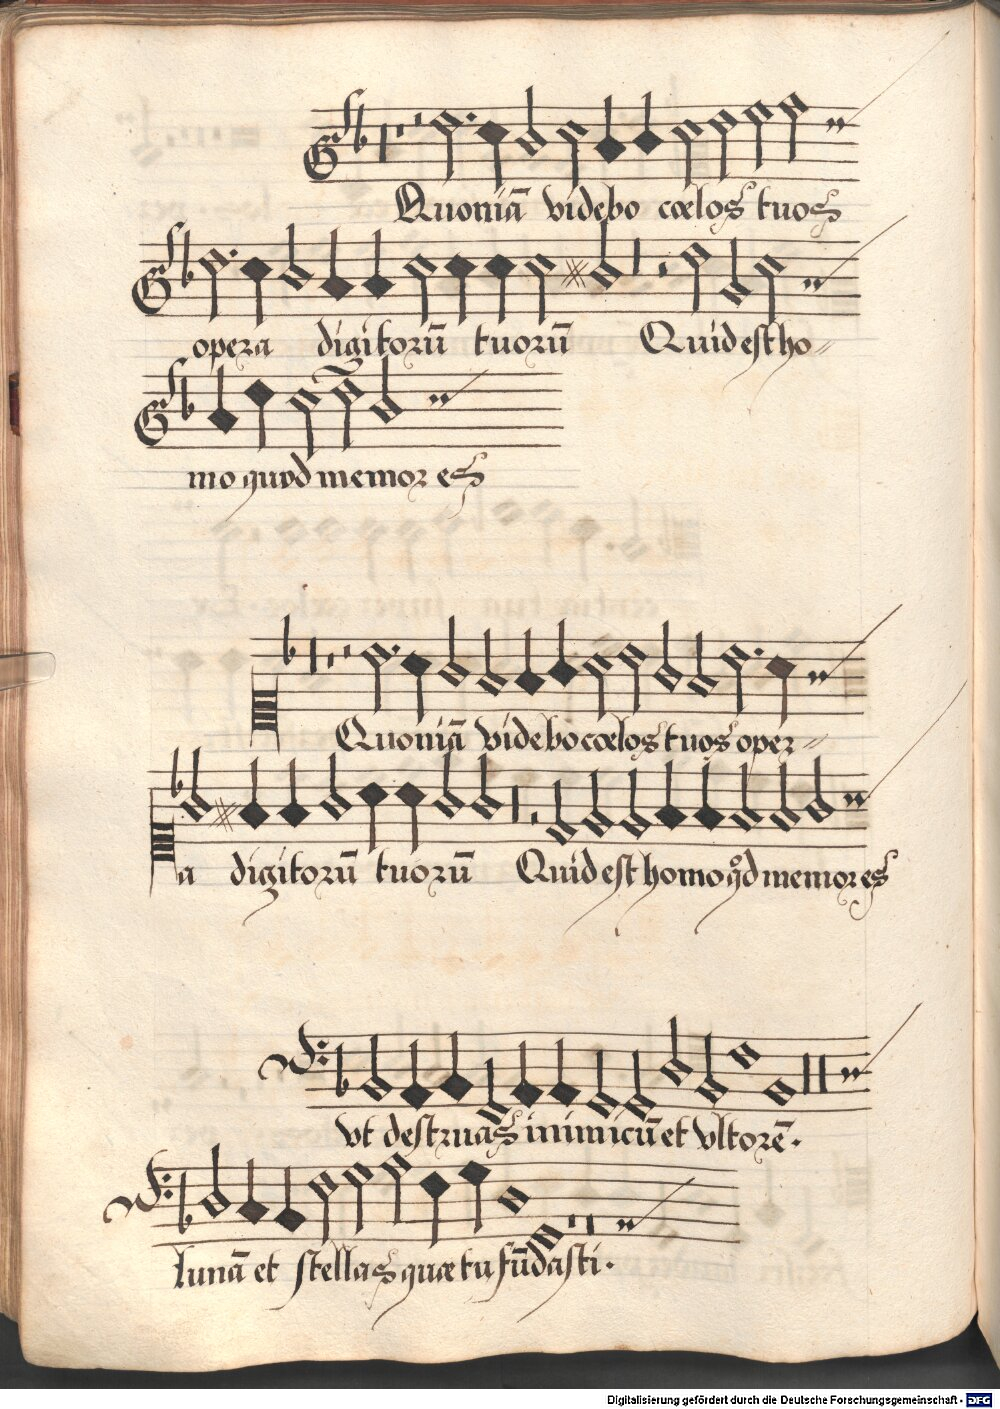 Quoniā videbo cœlos tuos
opera digitorū tuorū Quid est ho-
mo quod memor es
Quoniā videbo cœlos tuos oper-
a digitorū tuorū Quid est homo qd memor es
vt destruas inimicū et vltorē.
lunā et stellas quæ tu fūdasti.
Digitalisierung gefördert durch die Deutsche Forschungsgemeinschaft - DFG